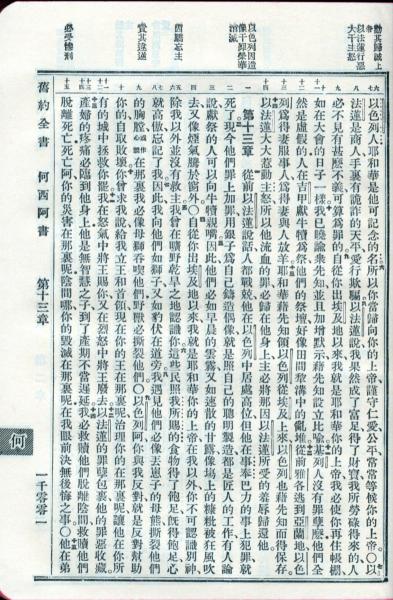 勸其歸誠上帝
以法蓮行惡大干主怒
以色列因造像干罪榮華消滅
因驕忘主
責其違逆
必受慘刑
以色列人、耶和華是他可記念的名、所以你當歸向你的上帝、謹守仁愛公平、常常等候你的上帝。〇以
法蓮是商人、手裏有詭詐的天平、愛行欺騙、以法蓮說、我果然成了富足、得了財寶、我所勞碌得來的、人
必不見有甚麼不義、可算爲罪的、自從你出埃及地以來、我就是耶和華你的上帝、我必使你再住帳棚、
如在大會的日子一樣、我已曉諭衆先知、並且加增默示、藉先知設立比喻、基列人沒有罪孽麼、他們全
然是虛假的、人在吉甲獻牛犢爲祭、他們的祭壇好像田間犂溝中的亂堆、從前雅各逃到亞蘭地、以色
列爲得妻服事人、爲得妻與人放羊、耶和華藉先知領以色列從埃及上來、以色列也藉先知而得保存、
以法蓮大大惹動主怒、所以他流血的罪必歸在他身上、主必將那因以法蓮所受的羞辱歸還他、
第十三章 從前以法蓮說話、人都戰兢、他在以色列中居處高位、但他在事奉巴力的事上犯罪、就
死了、現今他們罪上加罪、用銀子爲自己鑄造偶像、就是照自己的聰明製造、都是匠人的工作、有人論
說、獻祭的人可以向牛犢親嘴、因此他們必如早晨的雲霧、又如速散的甘露、像場上的糠粃被狂風吹
去、又像煙氣騰於窗外、〇自從你出埃及地以來、我就是耶和華你的上帝、在我以外、你不可認識別神、
除我以外並沒有救主、我曾在曠野乾旱之地認識你、這些民照我所賜的食物得了飽足、旣得飽足、心
就高傲忘記了我、因此我向他們如獅子、又如豹伏在道旁、我遇見他們必像丟崽子的母熊、撕裂他們
的胸膛、在那裏我必像母獅呑喫他們、野獸必撕裂他們、〇以色列阿、你與我反對、就是反對幫助
你的、自取敗壞、你曾求我說、給我立王和首領、現在你的王在那裏呢、治理你的在那裏呢、讓他在你所
有的城中拯救你罷、我在怒氣中將王賜你、又在烈怒中將王廢去、以法蓮的罪孽包裹、他的罪惡收藏、
產婦的疼痛必臨到他身上、他是無智慧之子、到了產期不當遲延、我必救贖他們脫離陰間、救贖他們
脫離死亡、死亡阿、你的災害在那裏呢、陰間哪、你的毀滅在那裏呢、在我眼前決無後悔之事、〇他在弟
舊約全書 何西阿書 第十三章
何
一千零零一